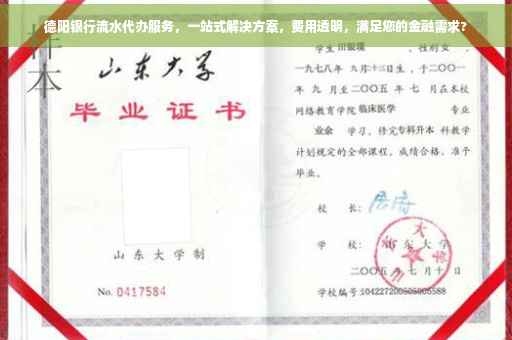 德阳银行流水代办服务，一站式解决方案，费用透明，满足您的金融需求？
样本
山东大学
毕业证书
山东大学制
No. 0417584
学生 田银瑛 ，性别女，
一九七八年 九月十三日生，于二〇〇一
年 九 月至二〇〇五 年 七 月在本校
网络教育学院 临床医学 专业
业余 学习，修完专科升本科教学
计划规定的全部课程，成绩合格，准予
毕业。
校 长：
学 校： 山东大学
二〇〇五 年 七 月 十 日
学校编号:104227200505005588